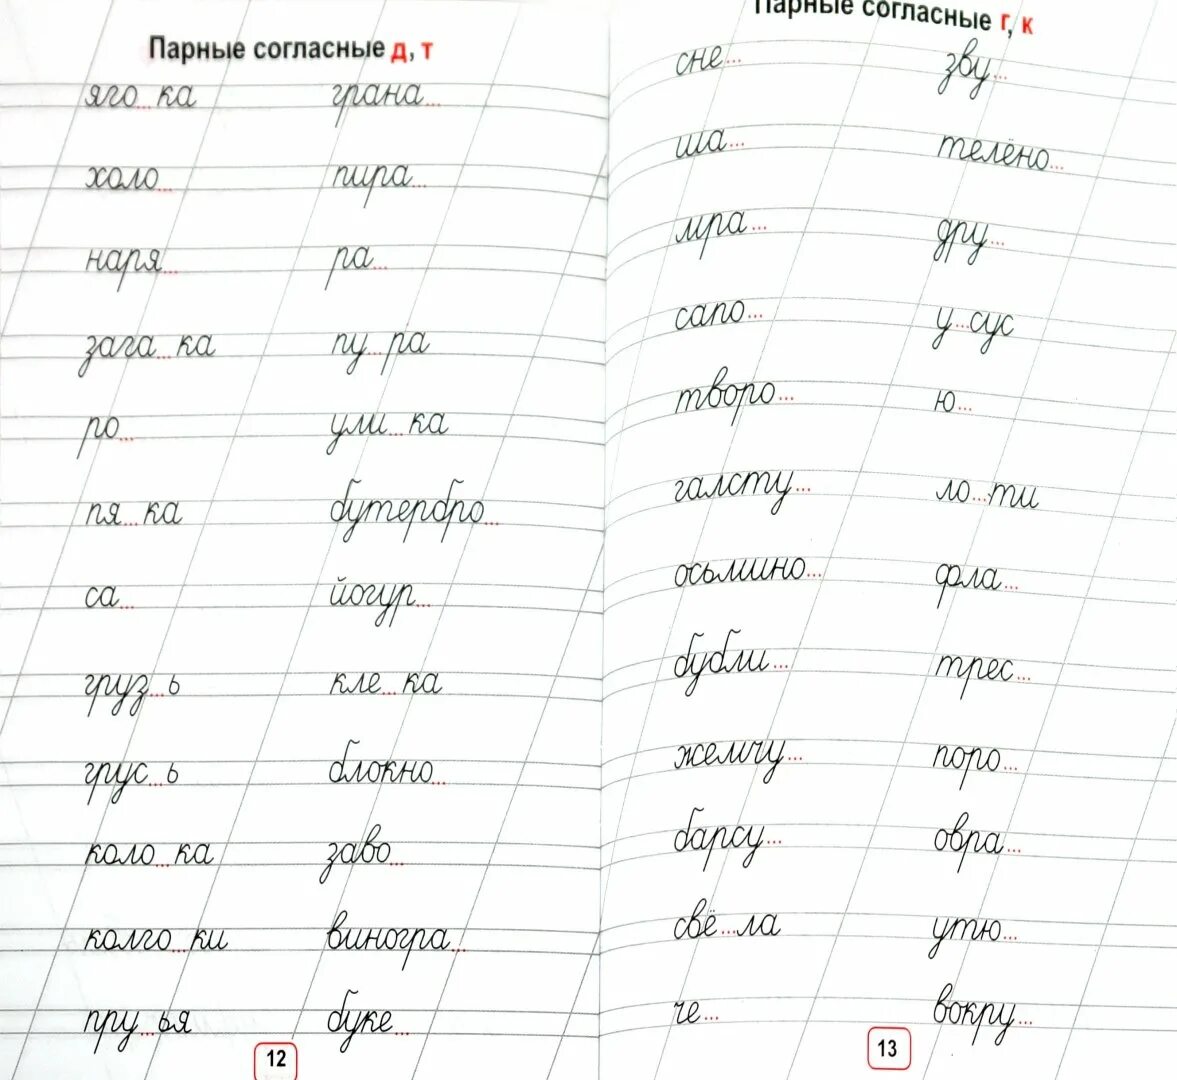 Парные согласные д, т
яго...ка грана...
холо... пира...
наря... ра...
зага...ка пу...ра
ро... ули...ка
пя...ка бутербро...
са... йогур...
груз...ь кле...ка
грус...ь блокно...
коло...ка заво...
колго...ки виногра...
пру...ья буке...
12
Парные согласные г, к
сне... зву...
ша... телёно...
мра... дру...
сапо... у...сус
творо... ю...
галсту... ло...ти
осьмино... фла...
бубли... трес...
жемчу... поро...
барсу... овра...
свё...ла утю...
че... вокру...
13